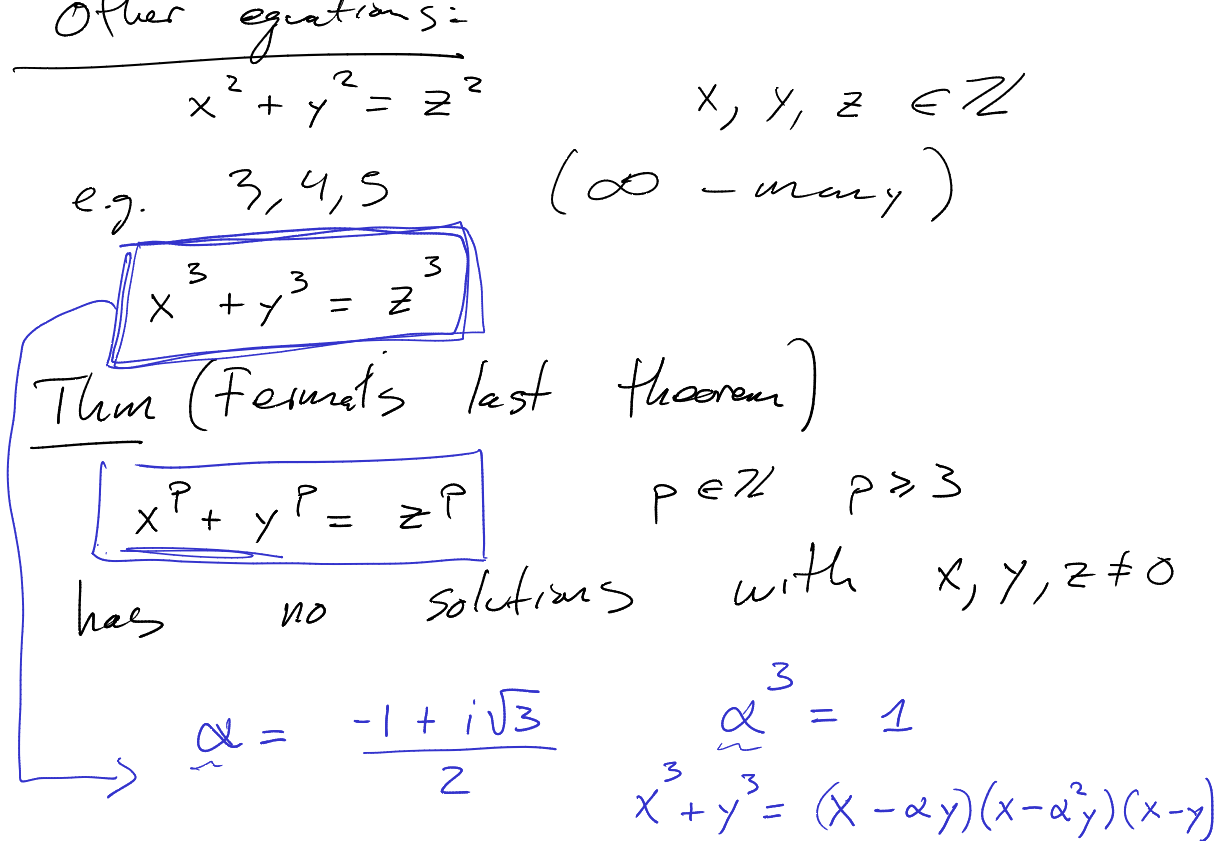 Other equations:
x² + y² = z² x, y, z ∈ ℤ
e.g. 3, 4, 5 (∞ - many)
x³ + y³ = z³
Thm (Fermat's last theorem)
xᵖ + yᵖ = zᵖ p ∈ ℤ p ⩾ 3
has no solutions with x, y, z ≠ 0
α = (-1 + i√3)/2 α³ = 1
x³ + y³ = (x - αy)(x - α²y)(x - y)